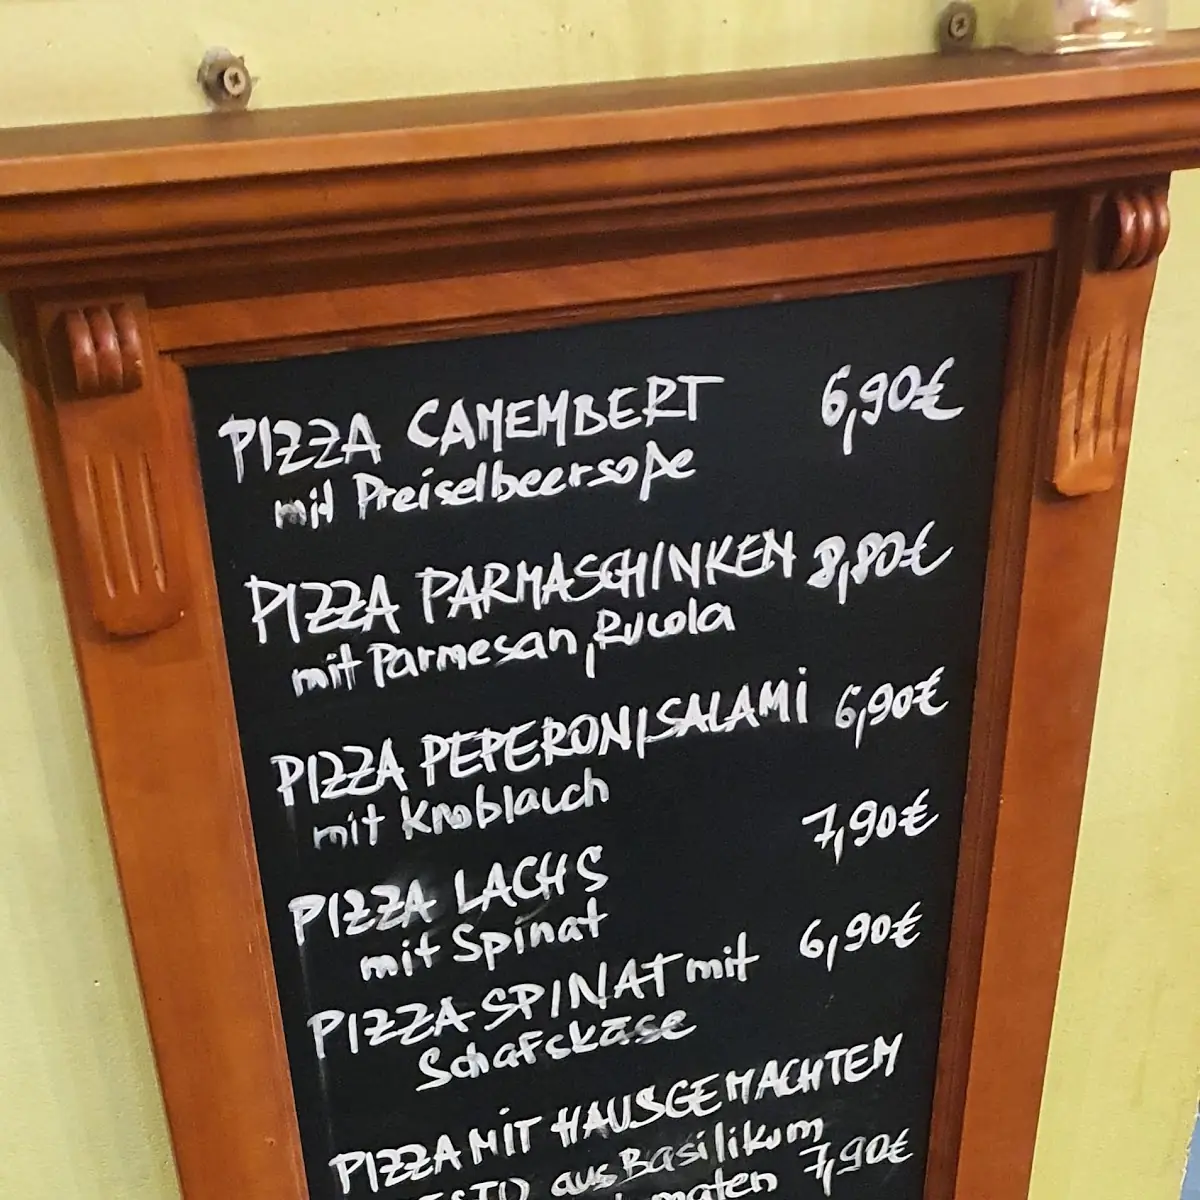 PIZZA CAMEMBERT 6,90€
mit Preiselbeersoße
PIZZA PARMASCHINKEN 8,80€
mit Parmesan, Rucola
PIZZA PEPERONISALAMI 6,90€
mit Knoblauch
PIZZA LACHS 7,90€
mit Spinat
PIZZA SPINAT mit 6,90€
Schafskäse
PIZZA MIT HAUSGEMACHTEM
aus Basilikum
7,90€